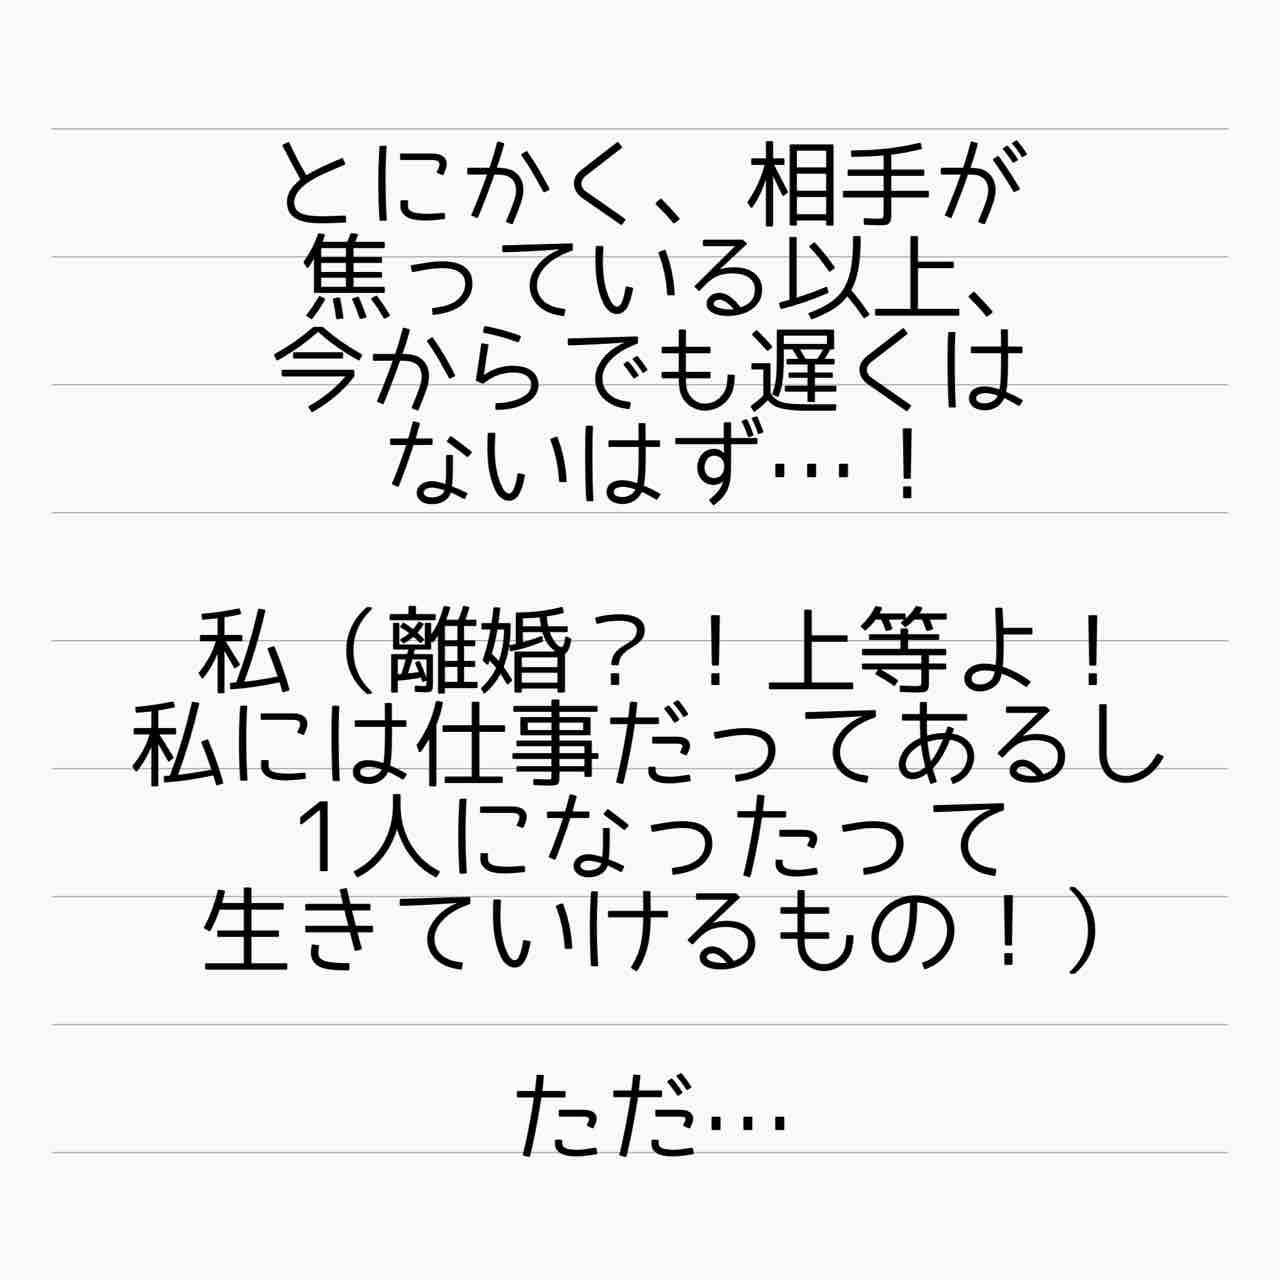 とにかく、相手が
焦っている以上、
今からでも遅くは
ないはず…！
私（離婚？！上等よ！
私には仕事だってあるし
1人になったって
生きていけるもの！）
ただ…